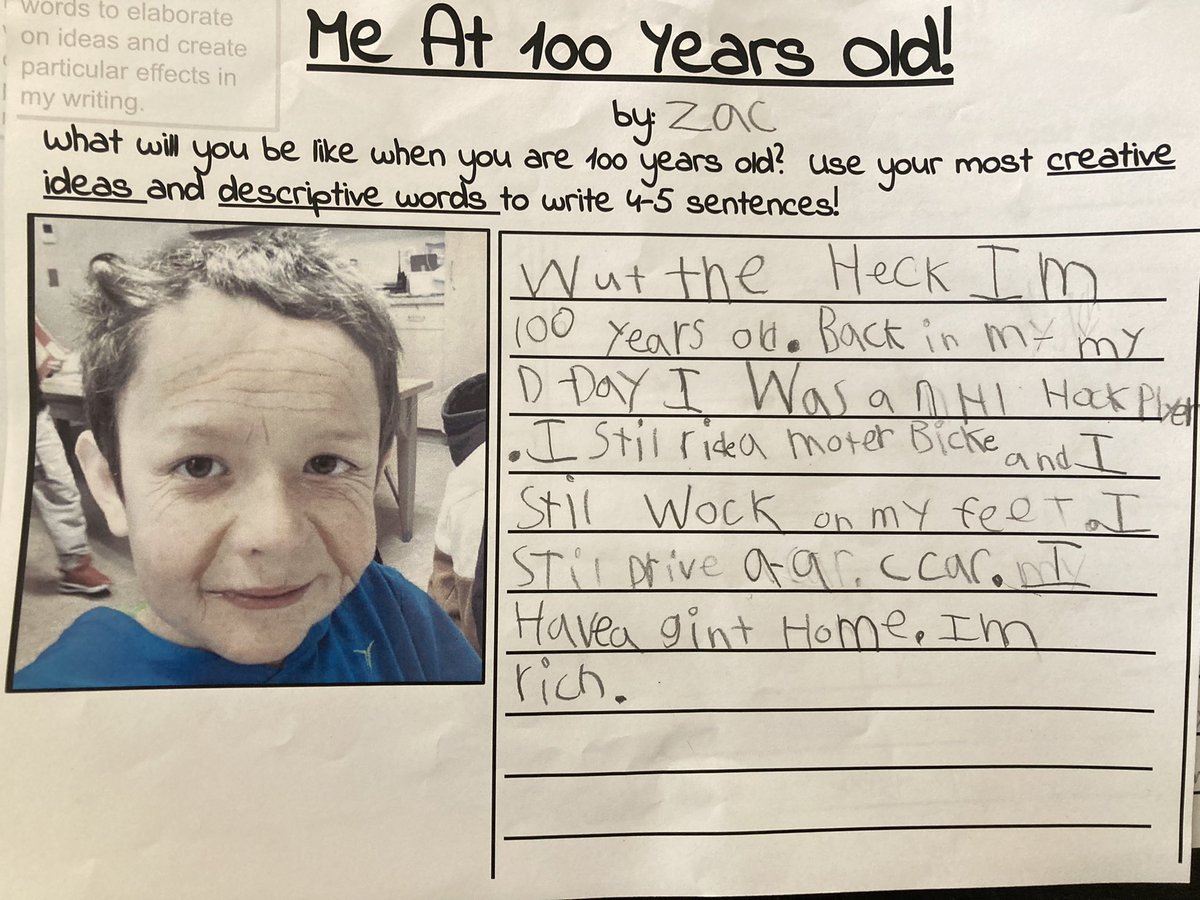 words to elaborate
on ideas and create
particular effects in
my writing.
Me At 100 Years Old!
by: Zac
What will you be like when you are 100 years old? Use your most creative
ideas and descriptive words to write 4-5 sentences!
Wut the Heck Im
100 years old. Back in my my
D-Day I Was a NHl Hock Plyer
. I Stil ride a moter Bicke and I
Stil Wock on my feet. I
Stil Drive a ar. c car. I
Have a gint Home. Im
rich.